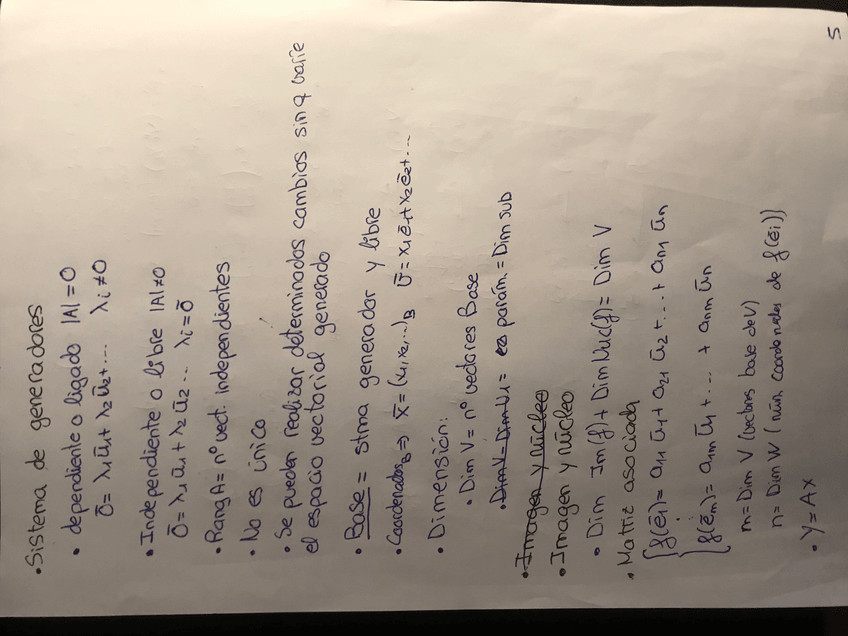 • Sistema de generadores
• dependiente o ligado |A| = 0
0̄ = λ1 ū1 + λ2 ū2 + ... λi ≠ 0
• Independiente o libre |A| ≠ 0
0̄ = λ1 ū1 + λ2 ū2 ... λi = 0̄
• Rang A = nº vect. independientes
• No es único
• Se pueden realizar determinados cambios sin q varíe
el espacio vectorial generado
• Base = stma generador y libre
• Coordenadas B => x̄ = (x1, x2, ...)B Ū = x1 ē1 + x2 ē2 + ...
• Dimensión:
• Dim V = nº vectores Base
• Dim V - Dim U1 = ec parám. = Dim sub
• Imagen y núcleo
• Imagen y núcleo
• Dim Im(f) + Dim Nuc(f) = Dim V
• Matriz asociada
f(ē1) = a11 ū1 + a21 ū2 + ... + an1 ūn
⋮
f(ēm) = a1m ū1 + ... + anm ūn
m = Dim V (vectores base de V)
n = Dim W (núm. coordenadas de f(ēi))
• Y = AX
5